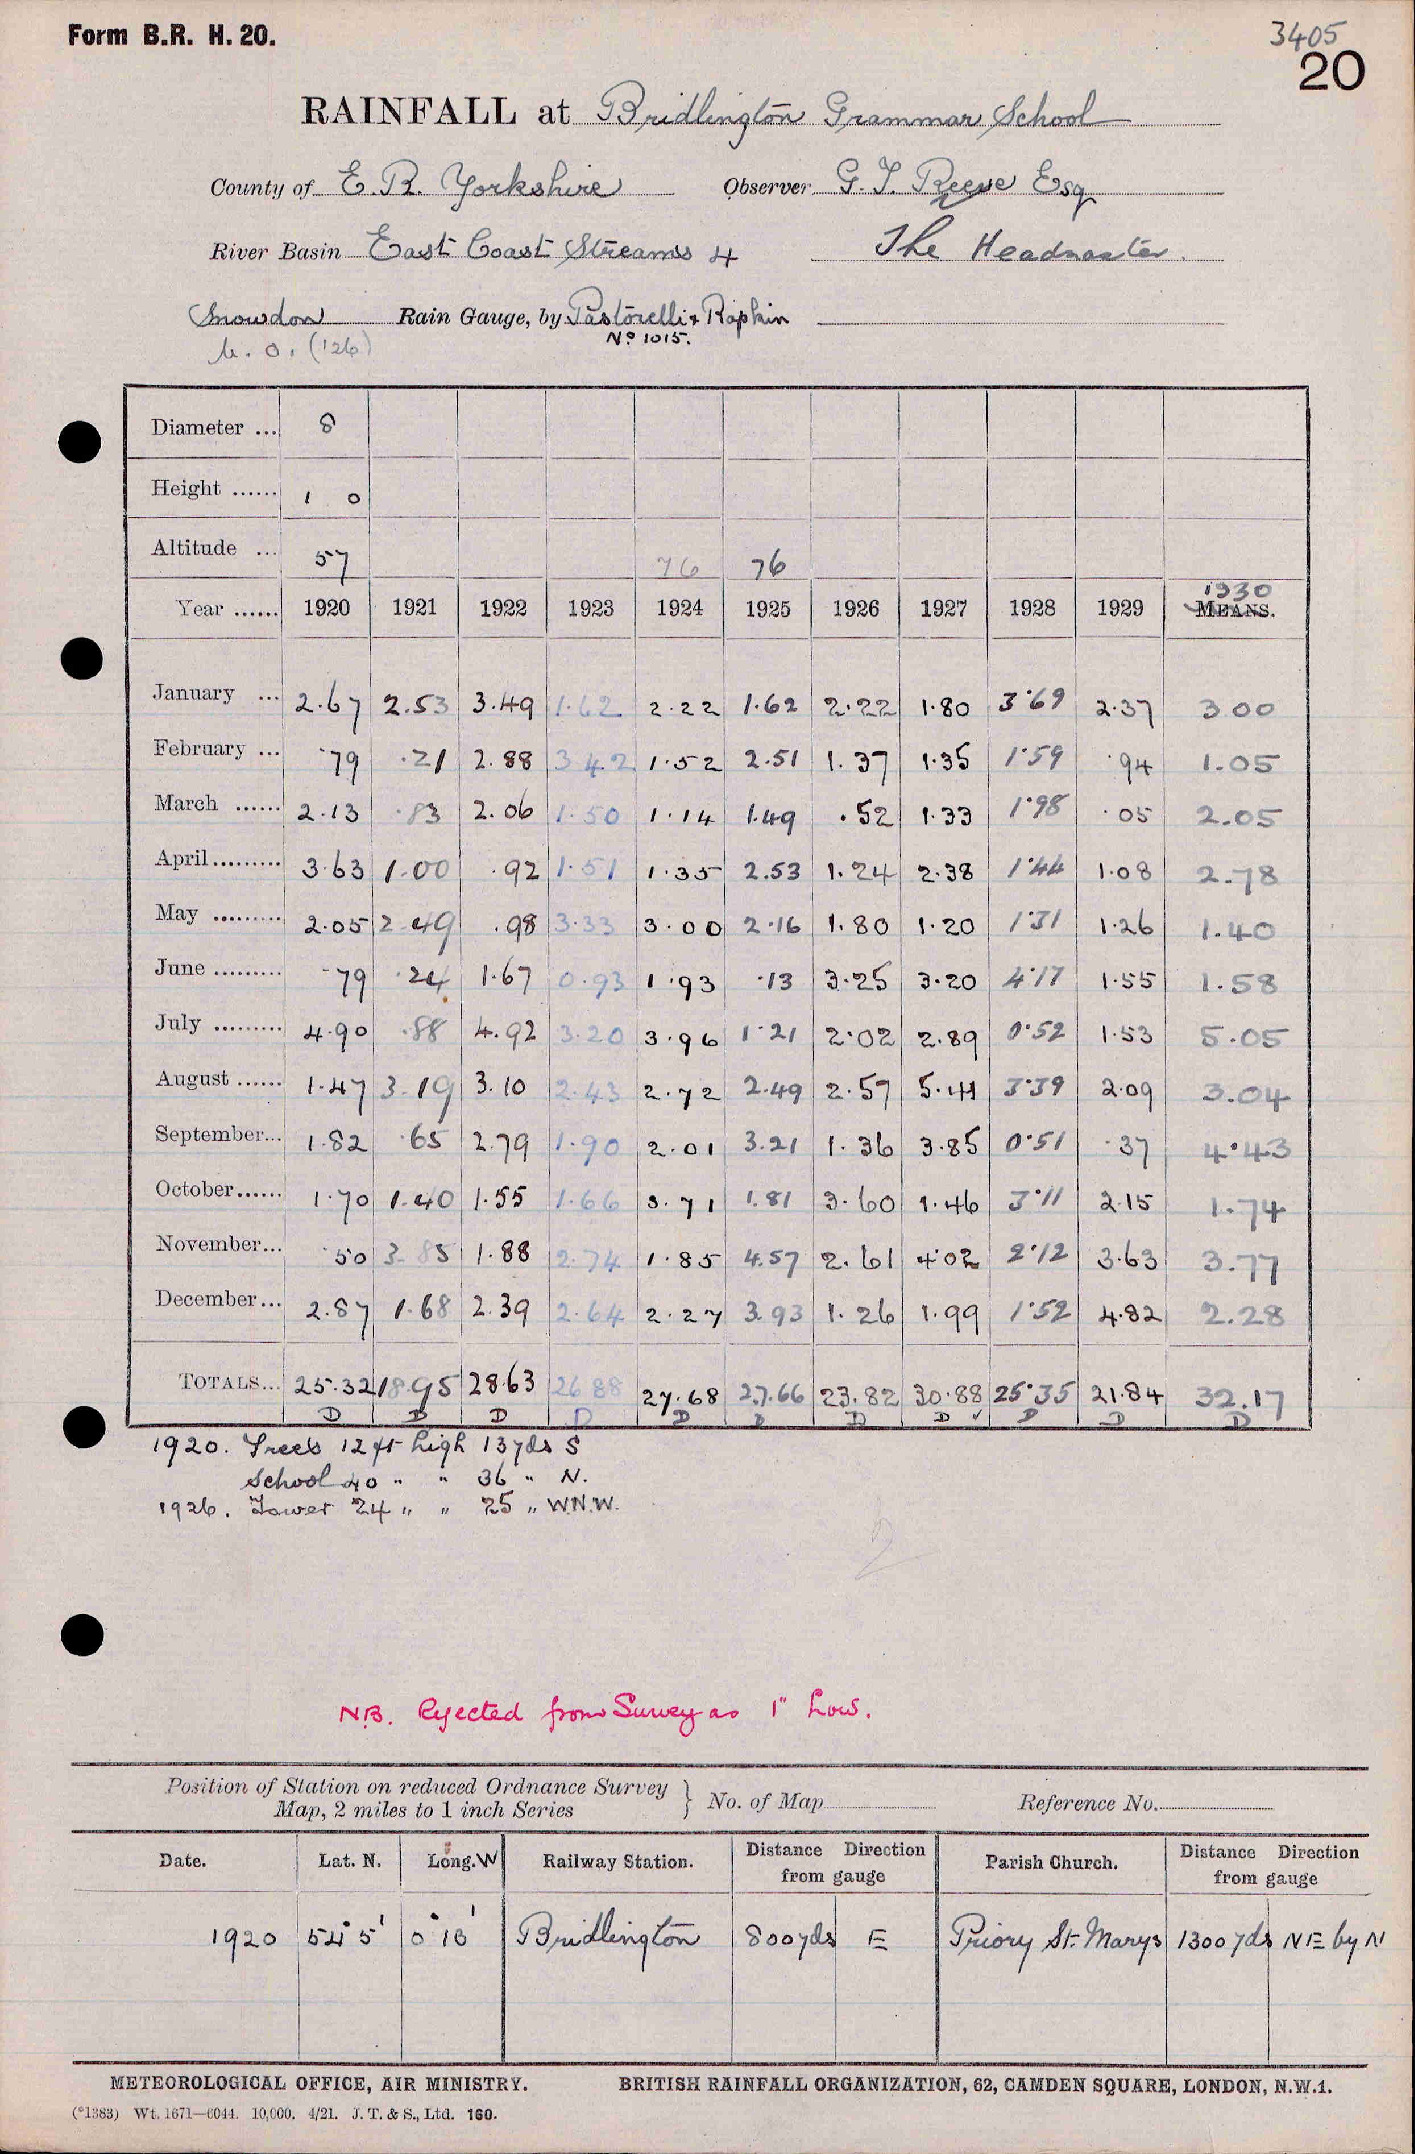 Form B.R. H. 20.
3405
20
RAINFALL at Bridlington Grammar School
County of E. R. Yorkshire Observer G. T. Reeve Esq
River Basin East Coast Streams 4 The Headmaster.
Snowdon Rain Gauge, by Pastorelli & Rapkin
M. O. (126) No 1015.
Diameter ... 8
Height ...... 1 0
Altitude ... 57 76 76
Year ...... 1920 1921 1922 1923 1924 1925 1926 1927 1928 1929 1930 MEANS.
January ... 2.67 2.53 3.49 1.62 2.22 1.62 2.22 1.80 3.69 2.37 3.00
February ... .79 .21 2.88 3.42 1.52 2.51 1.37 1.35 1.59 .94 1.05
March ...... 2.13 .83 2.06 1.50 1.14 1.49 .52 1.33 1.98 .05 2.05
April......... 3.63 1.00 .92 1.51 1.35 2.53 1.24 2.38 1.44 1.08 2.78
May ......... 2.05 2.49 .98 3.33 3.00 2.16 1.80 1.20 1.31 1.26 1.40
June ......... .79 .24 1.67 0.93 1.93 .13 3.25 3.20 4.17 1.55 1.58
July ......... 4.90 .88 4.92 3.20 3.96 1.21 2.02 2.89 0.52 1.53 5.05
August ...... 1.47 3.19 3.10 2.43 2.72 2.49 2.57 5.41 3.39 2.09 3.04
September... 1.82 .65 2.79 1.90 2.01 3.21 1.36 3.85 0.51 .37 4.43
October...... 1.70 1.40 1.55 1.66 3.71 1.81 3.60 1.46 3.11 2.15 1.74
November... .50 3.85 1.88 2.74 1.85 4.57 2.61 4.02 2.12 3.63 3.77
December... 2.87 1.68 2.39 2.64 2.27 3.93 1.26 1.99 1.52 4.82 2.28
TOTALS... 25.32 18.95 28.63 26.88 27.68 27.66 23.82 30.88 25.35 21.84 32.17
D D D D D D D D ✓ D D D
1920. Trees 12 ft high 13 yds S
School 40 " " 36 " N.
1926. Tower 24 " " 25 " W.N.W.
2
N.B. Rejected from Survey as 1" Low.
Position of Station on reduced Ordnance Survey Map, 2 miles to 1 inch Series } No. of Map Reference No.
Date. Lat. N. Long. W Railway Station. Distance Direction from gauge Parish Church. Distance Direction from gauge
1920 54° 5' 0° 13' Bridlington 800 yds E Priory St. Marys 1300 yds NE by N
METEOROLOGICAL OFFICE, AIR MINISTRY. BRITISH RAINFALL ORGANIZATION, 62, CAMDEN SQUARE, LONDON, N.W.1.
(*1383) Wt. 1671—6044. 10,000. 4/21. J. T. & S., Ltd. 160.